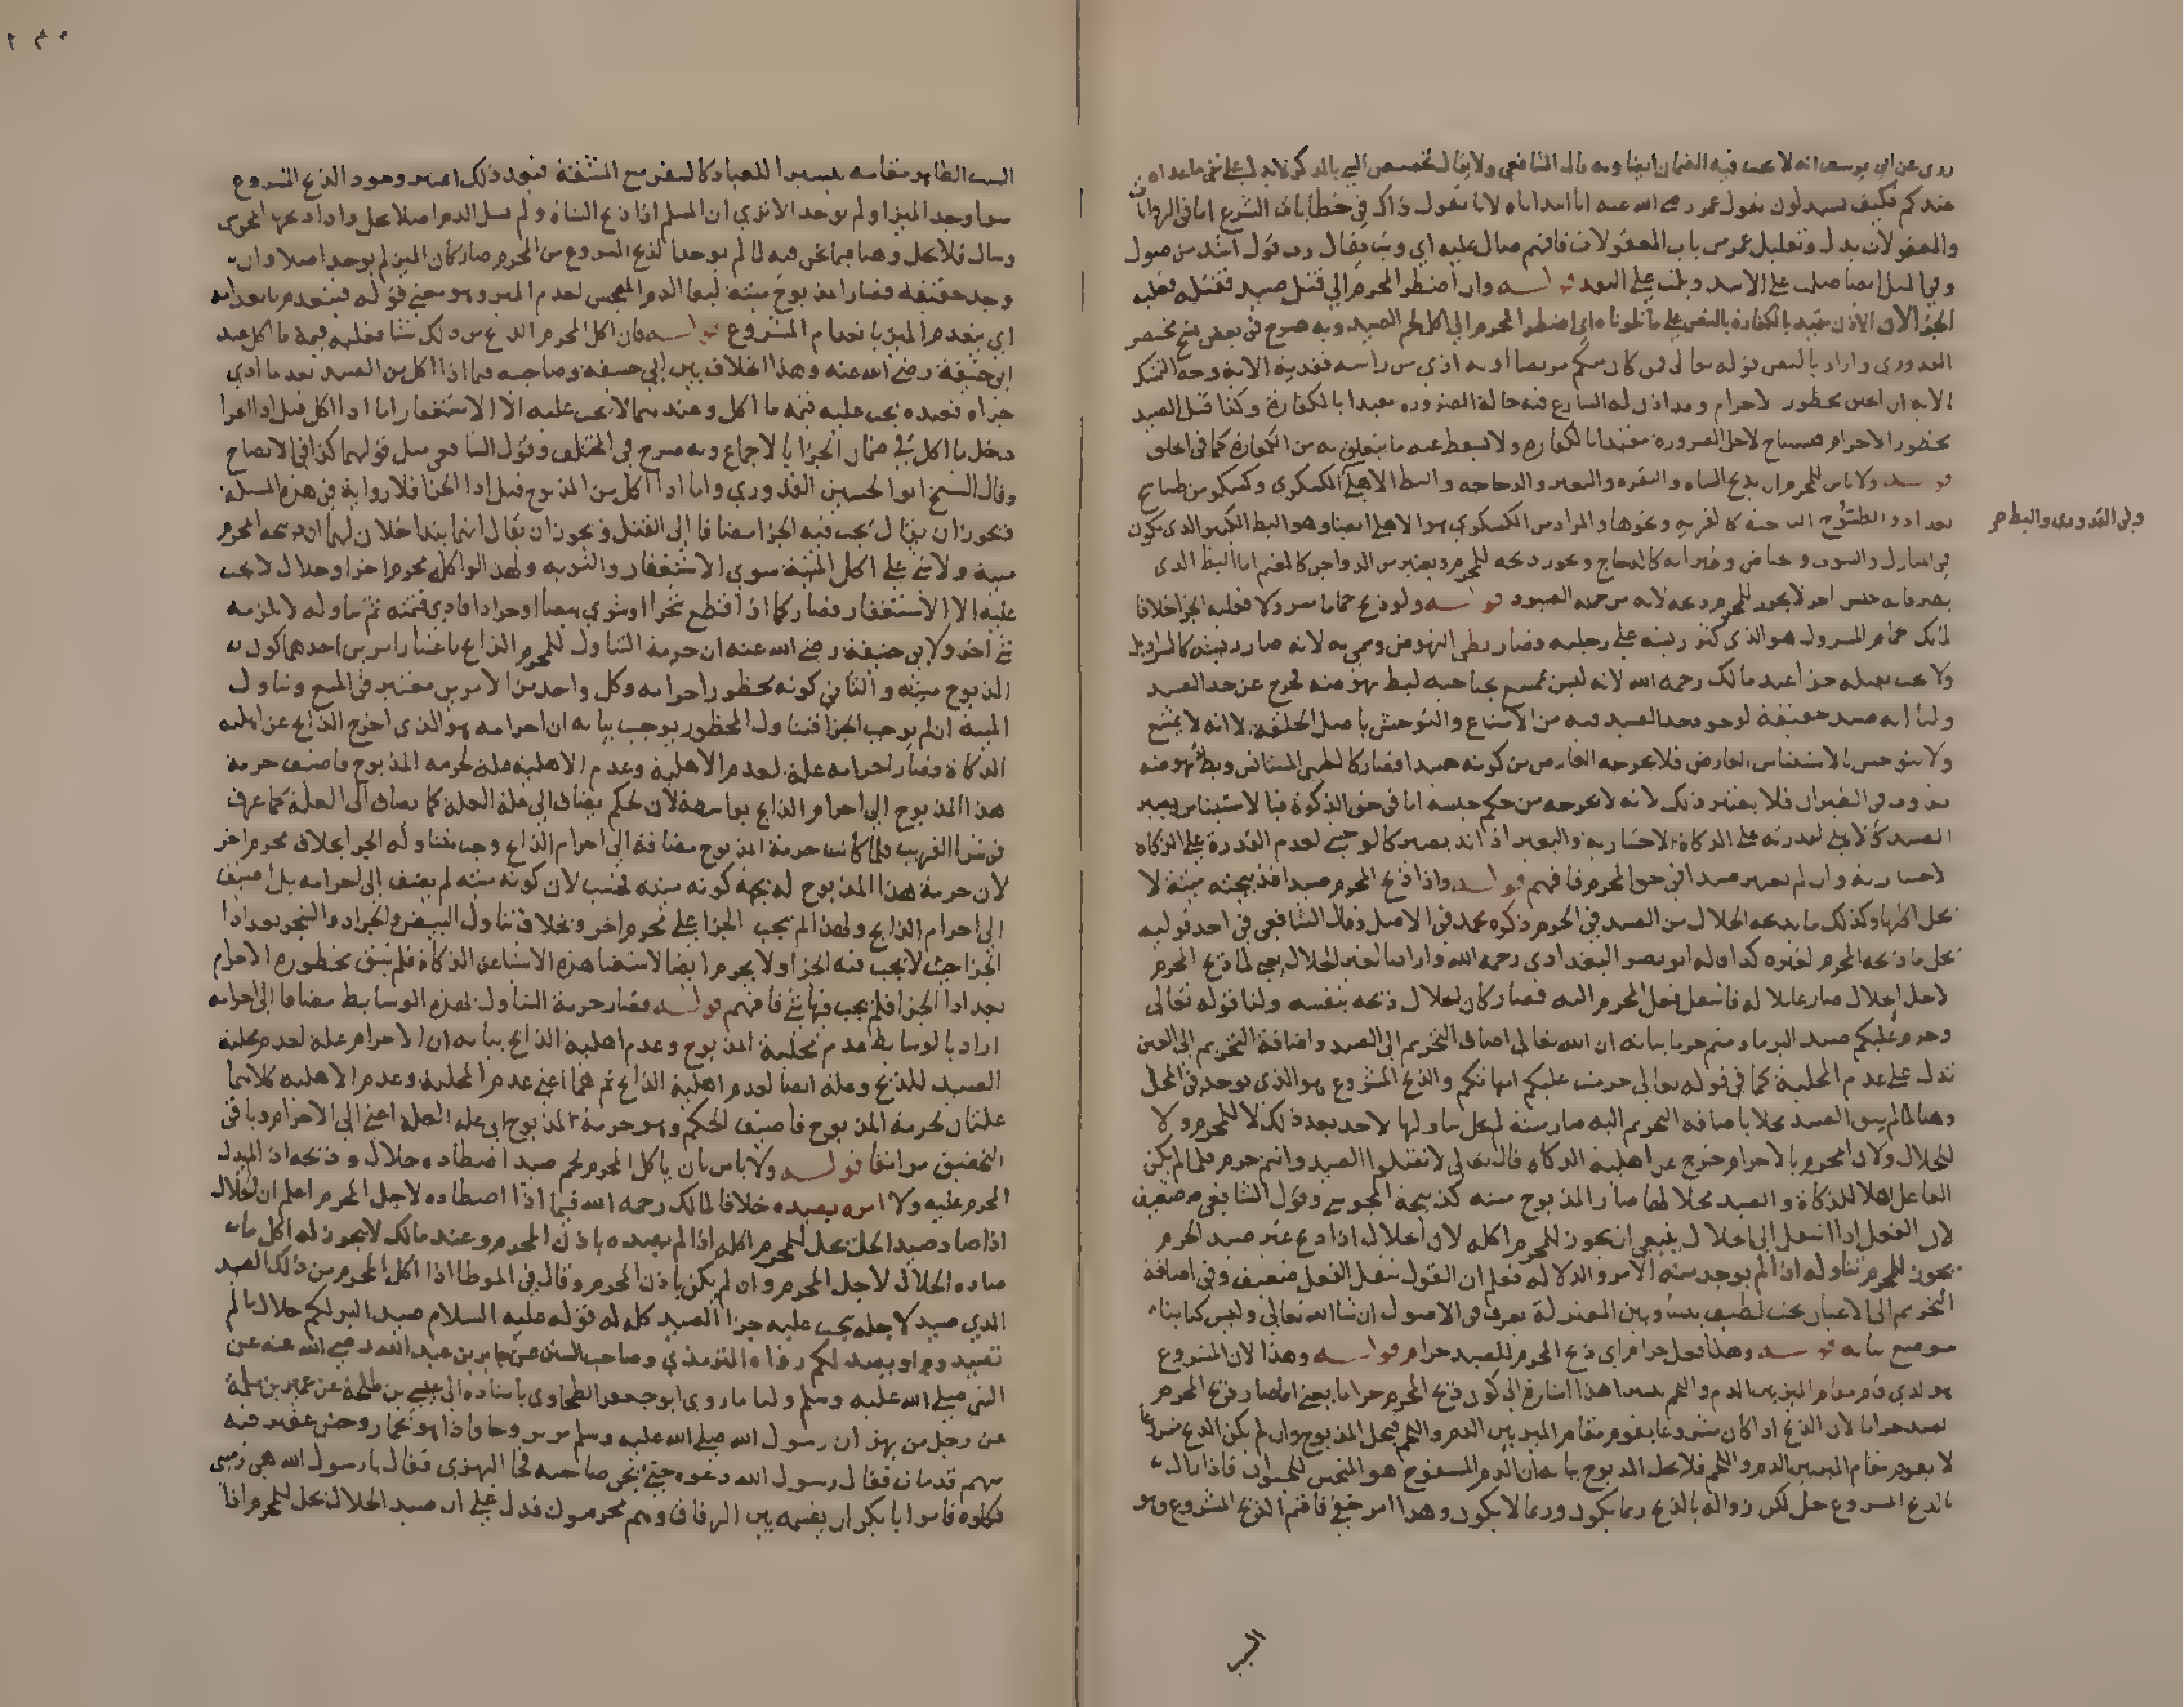 روى عن ابي يوسف انه لا يجب فيه الضمان ايضا وبه قال الشافعي ولا يقال تخصيص الشي بالذكر لا يدل على نفي ما عداه
عندكم فكيف تستدلون بقول عمر رضي الله عنه انا ابتداناه لانا نقول ذاك في خطابات الشرع اما في الروايات
والمعقولات يدل وتعليل عمر من باب المعقولات فافهم صال عليه اي وثب يقال رب قول اشد من صول
وفي المثل ايضا صلت على الاسد وبلت على النقد قوله وان اضطر المحرم الى قتل صيد فقتله فعليه
الجزا لان الاذن مقيد بالكفارة بالنص على ما تلوناه اي اضطر المحرم الى اكل لحم الصيد وبه صرح في بعض نسخ مختصر
القدوري واراد بالنص قوله تعالى فمن كان منكم مريضا او به اذى من راسه ففدية الاية وجه التمسك
بالاية ان الحلق محظور الاحرام وقد اذن له الشارع فيه حالة الضرورة مقيدا بالكفارة وكذا قتل الصيد
محظور الاحرام فيستباح لاجل الضرورة مقيدا بالكفارة ولا يسقط عنه ما يتعلق به من الكفارة كما في الحلق
قوله ولا باس للمحرم ان يذبح الشاة والبقرة والبعير والدجاجة والبط الاهلي الكسكري وكسكر من طساسيج
بغداد والطسوج الناحية كالقرية ونحوها والمراد من الكسكري هو الاهلي ايضا وهو البط الكبير الذي يكون
وفي القدوري والبط
في المنازل والبيوت وحياض وطيرانه كالدجاج ويجوز ذبحه للمحرم ويعتبر من الدواجن كالغنم اما البط الذي
يطير فانه جنس اخر لا يجوز للمحرم ذبحه لانه من جملة الصيود قوله ولو ذبح حماما مسرولا فعليه الجزا خلافا
لمالك حمام المسرول هو الذي كثر ريشه على رجليه وصار بطي النهوض وسمي به لانه صار ريشه كالسراويل
ولا يجب بقتله جزا عند مالك رحمه الله لانه ليس ممتنع بجناحيه لبط نهوضه فخرج عن حد الصيد
ولنا انه صيد حقيقة لوجود حد الصيد فيه من الامتناع والتوحش باصل الخلقة لا انه لا يمتنع
ولا يتوحش بالاستيناس العارض فلا يخرجه العارض من كونه صيدا فصار كالظبي المستانس وبطؤ نهوضه
يتفاوت في الطيران فلا يعتبر ذلك لانه لا يخرجه من حكم جنسه اما في حق الذكوة فالاستيناس يعتبر
الصيد كالاهلي لقدرته على الذكاة الاختيارية والبعير اذا ند يصير كالوحشي لعدم القدرة على الذكاة
الاختيارية وان لم يصير صيدا في حق المحرم فافهم قوله واذا ذبح المحرم صيدا فذبيحته ميتة لا
يحل اكلها وكذلك ما يذبحه الحلال من الصيد في الحرم ذكره محمد في الاصل وقال الشافعي في احد قوليه
يحل ما ذبحه المحرم لغيره كذا قاله ابو نصر البغدادي رحمه الله واراد بالغير الحلال يعني لما ذبح المحرم
لاجل الحلال صار عاملا له فانتقل فعل المحرم اليه فصار كان الحلال ذبحه بنفسه ولنا قوله تعالى
وحرم عليكم صيد البر ما دمتم حرما بيانه ان الله تعالى اضاف التحريم الى الصيد واضافة التحريم الى العين
تدل على عدم المحلية كما في قوله تعالى حرمت عليكم امهاتكم والذبح المشروع هو الذي يوجد في المحل
وهنا لما لم يبق الصيد محلا باضافة التحريم اليه صار ميتة لم يحل تناولها لاحد بعد ذلك لا للمحرم ولا
للحلال ولان المحرم بالاحرام خرج عن اهلية الذكاة قال تعالى لا تقتلوا الصيد وانتم حرم فلما لم يكن
الفاعل اهلا للذكاة والصيد محلا لها صار المذبوح ميتة كذبيحة المجوسي وقول الشافعي ضعيف
لان الفعل اذا انتقل الى الحلال ينبغي ان يجوز للمحرم اكله لان الحلال اذا ذبح غير صيد الحرم
يجوز للمحرم تناوله اذا لم يوجد منه الامر والدلالة فعلم ان القول بنقل الفعل ضعيف وفي اضافة
التحريم الى الاعيان بحث لطيف بيننا وبين المعتزلة يعرف في الاصول ان شا الله تعالى وليس كتابنا
موضع بيانه قوله وهذا فعل حرام اي ذبح المحرم للصيد حرام قوله وهذا لان المشروع
هو الذي قام مقام الميز بين الدم واللحم تيسيرا هذا اشارة الى كون ذبح المحرم حراما يعني انما صار ذبح المحرم
للصيد حراما لان الذبح اذا كان مشروعا يقوم مقام الميز بين الدم واللحم فيحل المذبوح وان لم يكن الذبح مشروعا
لا يقوم مقام الميز بين الدم واللحم فلا يحل المذبوح بيانه ان الدم المسفوح هو المنجس للحيوان فاذا زال
بالذبح المشروع حل لكن زواله بالذبح ربما يكون وربما لا يكون وهذا امر خفي فاقيم الذبح المشروع وهو
السبب
السبب الظاهر مقامه تيسيرا للعباد كالسفر مع المشقة فبعد ذلك اعتبر وجود الذبح المشروع
سوا وجد الميز او لم يوجد الا ترى ان المسلم اذا ذبح الشاة ولم يسل الدم اصلا يحل واذا ذبحها المجوسي
وسال فلا يحل وهنا فيما نحن فيه لما لم يوجد الذبح المشروع من المحرم صار كان الميز لم يوجد اصلا وان
وجد حقيقة فصار المذبوح ميتة لبقا الدم المنجس لعدم الميز وهو معنى قوله فينعدم بانعدامه
اي ينعدم الميز بانعدام المشروع قوله فان اكل المحرم الذابح من ذلك شيئا فعليه قيمة ما اكل عند
ابي حنيفة رضي الله عنه وهذا الخلاف بين ابي حنيفة وصاحبيه فيما اذا اكل من الصيد بعد ما ادى
جزاه فعنده يجب عليه قيمة ما اكل وعندهما لا يجب عليه الا الاستغفار اما اذا اكل قبل ادا الجزا
دخل ما اكل في ضمان الجزا بالاجماع وبه صرح في المختلف وقول الشافعي مثل قولهما كذا في الايضاح
وقال الشيخ ابو الحسين القدوري واما اذا اكل من المذبوح قبل ادا الجزا فلا رواية في هذه المسئلة
فيجوز ان يقال يجب فيه الجزا مضافا الى القتل ويجوز ان يقال انهما يتداخلان لهما ان ذبيحة المحرم
ميتة ولا شي على اكل الميتة سوى الاستغفار والتوبة ولهذا لو اكله محرم اخر او حلال لا يجب
عليه الا الاستغفار فصار كما اذا قطع شجرا او شوى بيضا او جرادا فادى قيمته ثم تناوله لا يلزمه
شي اخر ولابي حنيفة رضي الله عنه ان حرمة التناول للمحرم الذابح باعتبار امرين احدهما كون
المذبوح ميتة والثاني كونه محظور احرامه وكل واحد من الامرين معتبر في المنع وتناول
الميتة ان لم يوجب الجزا فتناول المحظور يوجب بيانه ان احرامه هو الذي اخرج الذابح عن اهلية
الذكاة فصار احرامه علة لعدم الاهلية وعدم الاهلية علة لحرمة المذبوح فاضيف حرمة
هذا المذبوح الى احرام الذابح بواسطة لان الحكم يضاف الى علة العلة كما يضاف الى العلة كما عرف
في شرا القريب فلما كانت حرمة المذبوح مضافة الى احرام الذابح وجب بتناوله الجزا بخلاف محرم اخر
لان حرمة هذا المذبوح له بجهة كونه ميتة فحسب لان كونه ميتة لم يضف الى احرامه بل اضيف
الى احرام الذابح ولهذا لم يجب الجزا على محرم اخر وبخلاف تناول البيض والجراد والشجر بعد ادا
الجزا حيث لا يجب فيه الجزا ولا يحرم ايضا لاستغنا هذه الاشيا عن الذكاة فلم تبق محظورة الاحرام
بعد ادا الجزا فلم يجب فيها شي فافهم قوله فصار حرمة التناول بهذه الوسايط مضافا الى احرامه
اراد بالوسايط عدم محلية المذبوح وعدم اهلية الذابح بيانه ان الاحرام علة لعدم محلية
الصيد للذبح وعلة ايضا لعدم اهلية الذابح ثم هما اعني عدم المحلية وعدم الاهلية كلاهما
علتان لحرمة المذبوح فاضيف الحكم وهو حرمة المذبوح الى علة العلة اعني الى الاحرام وباقي
التحقيق مر انفا قوله ولا باس بان ياكل المحرم لحم صيد اصطاده حلال وذبحه اذا لم يدل
المحرم عليه ولا امره بصيده خلافا لمالك رحمه الله فيما اذا اصطاده لاجل المحرم اعلم ان الحلال
اذا صاد صيد الحل يحل للمحرم اكله اذا لم يصيده باذن المحرم وعند مالك لا يجوز له اكل ما
صاده الحلال لاجل المحرم وان لم يكن باذن المحرم وقال في الموطا اذا اكل المحرم من ذلك الصيد
الذي صيد لاجله يجب عليه جزا الصيد كله له قوله عليه السلام صيد البر لكم حلال ما لم
تصيدوه او يصيد لكم رواه الترمذي وصاحب السنن عن جابر بن عبد الله رضي الله عنه عن
النبي صلى الله عليه وسلم ولنا ما روى ابو جعفر الطحاوي باسناده الى عيسى بن طلحة عن عمير بن سلمة
عن رجل من بهز ان رسول الله صلى الله عليه وسلم مر بالروحا فاذا هو بحمار وحش عقير فيه
سهم قد مات فقال رسول الله دعوه حتى يجي صاحبه فجا البهزي فقال يا رسول الله هي رميتي
فكلوه فامر ابا بكر ان يقسمه بين الرفاق وهم محرمون فدل على ان صيد الحلال يحل للمحرم اذا